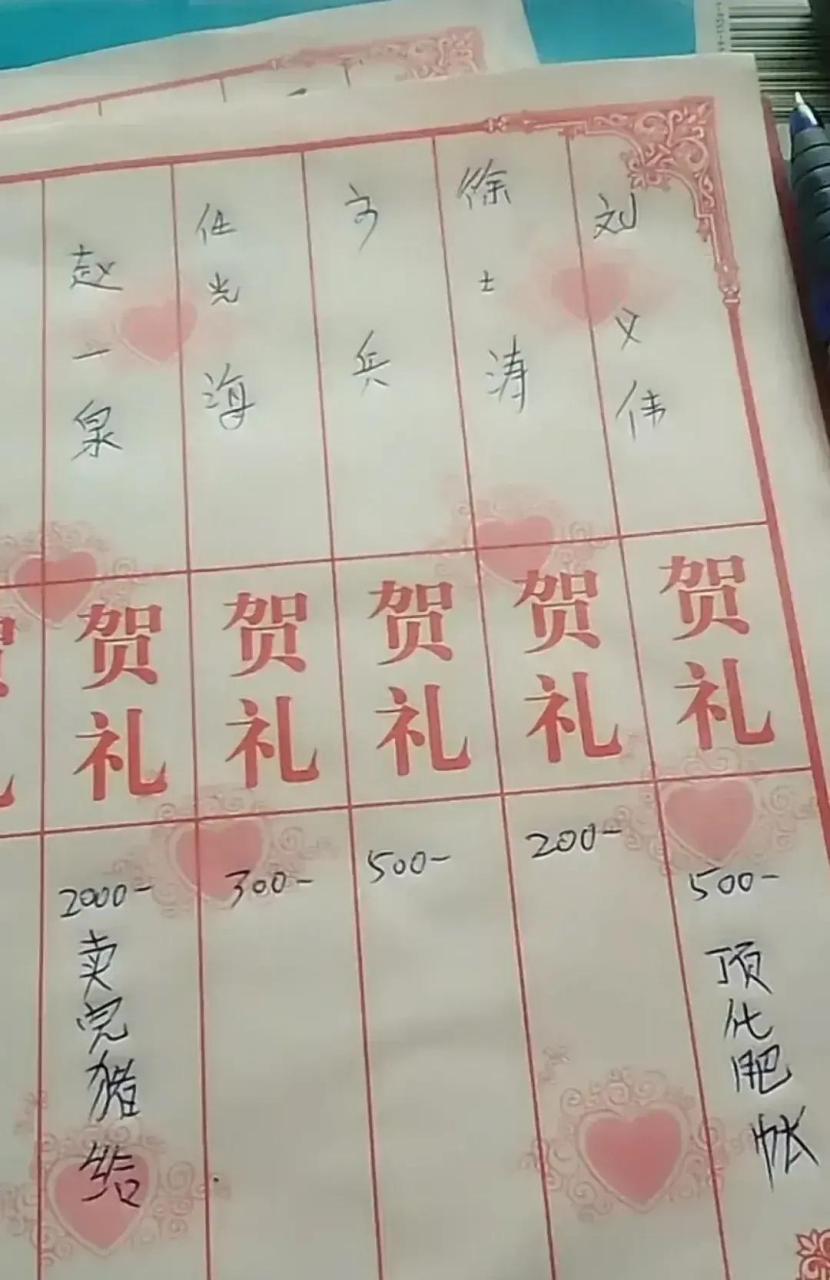 刘义伟
贺礼
500-
顶化肥帐
徐士涛
贺礼
200-
方兵
贺礼
500-
任光海
贺礼
300-
赵一泉
贺礼
2000-
卖完猪给